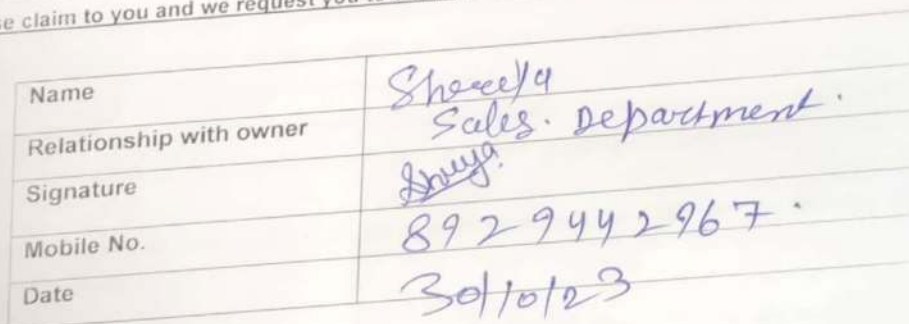 se claim to you and we request you
Name Shreeya
Relationship with owner Sales. Department.
Signature Shreya
Mobile No. 8929442967.
Date 30/10/23